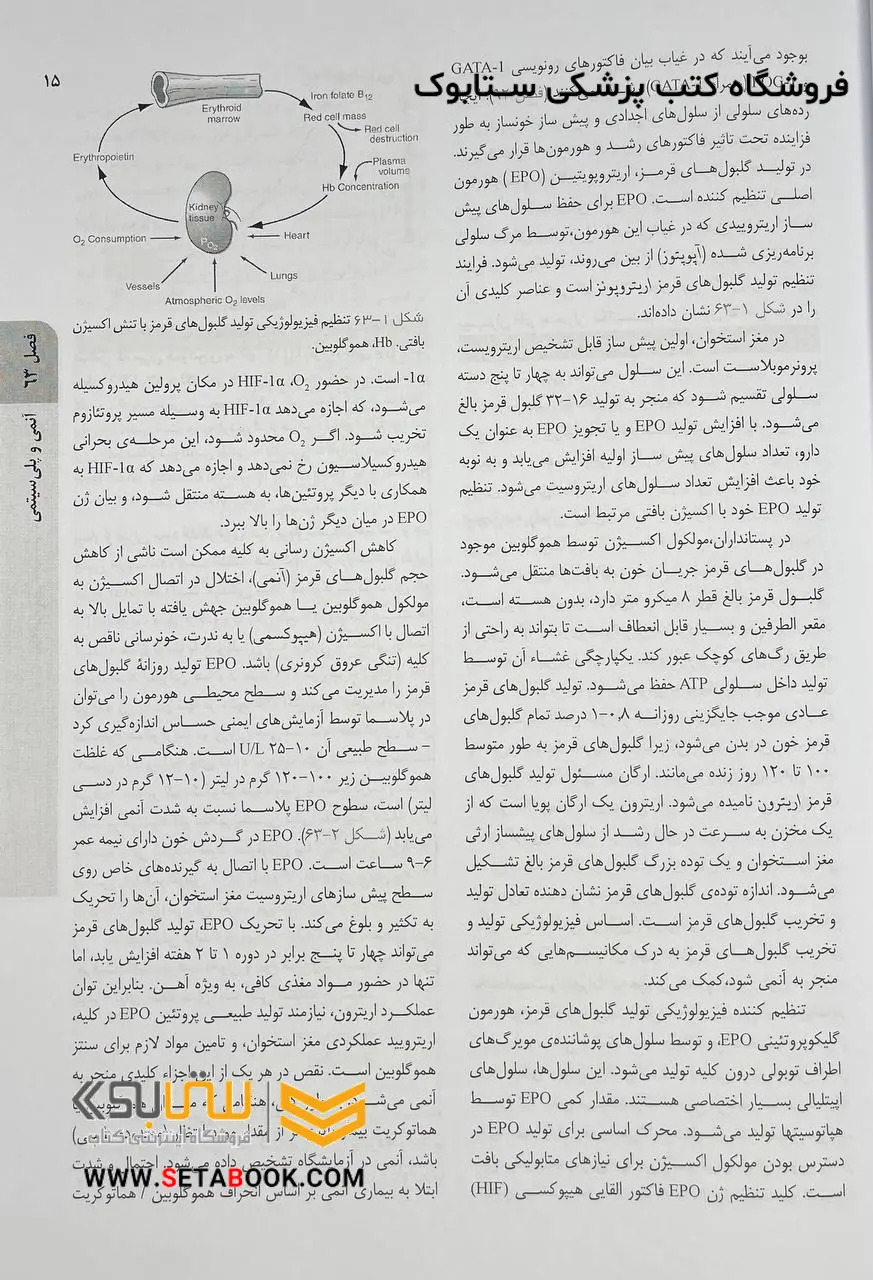 ۱۵
فروشگاه کتب پزشکی ستابوک
بوجود می‌آیند که در غیاب بیان فاکتورهای رونویسی GATA-1
رده‌های سلولی از سلول‌های اجدادی و پیش ساز خونساز به طور
فزاینده تحت تاثیر فاکتورهای رشد و هورمون‌ها قرار می‌گیرند.
در تولیـد گلبول‌هـای قرمـز، اریتروپویتیـن (EPO ) هورمون
اصلـی تنظیم کننده اسـت. EPO برای حفظ سـلول‌های پیش
سـاز اریتروییدی که در غیاب این هورمون،توسـط مرگ سلولی
برنامه‌ریزی شـده (آپوپتوز) از بین می‌روند، تولید می‌شود. فرایند
تنظیم تولید گلبول‌های قرمز اریتروپونز است و عناصر کلیدی آن
را در شکل ۱-۶۳ نشان داده‌اند.
در مغز استخوان، اولین پیش ساز قابل تشخیص اریترویست،
پرونرموبلاسـت است. این سـلول می‌تواند به چهار تا پنج دسته
سـلولی تقسیم شـود که منجر به تولید ۱۶-۳۲ گلبول قرمز بالغ
می‌شـود. با افزایش تولید EPO و یا تجویز EPO به عنوان یک
دارو، تعداد سلول‌های پیش ساز اولیه افزایش می‌یابد و به نوبه
خود باعث افزایش تعداد سـلول‌های اریتروسیت می‌شود. تنظیم
تولید EPO خود با اکسیژن بافتی مرتبط است.
در پستانداران،مولکول اکسـیژن توسط هموگلوبین موجود
در گلبول‌هـای قرمز جریـان خون به بافت‌ها منتقل می‌شـود.
گلبـول قرمز بالغ قطر ۸ میکرو متر دارد، بدون هسـته اسـت،
مقعر الطرفین و بسـیار قابل انعطاف اسـت تا بتواند به راحتی از
طریق رگ‌های کوچک عبور کند. یکپارچگی غشـاء آن توسـط
تولید داخل سـلولی ATP حفظ می‌شـود. تولید گلبول‌های قرمز
عـادی موجب جایگزینی روزانـه ۰٫۸-۱ درصد تمام گلبول‌های
قرمز خون در بدن می‌شود، زیرا گلبول‌های قرمز به طور متوسط
۱۰۰ تا ۱۲۰ روز زنده می‌مانند. ارگان مسـئول تولید گلبول‌های
قرمز اریترون نامیده می‌شود. اریترون یک ارگان پویا است که از
یک مخزن به سـرعت در حال رشـد از سلول‌های پیشساز ارثی
مغز اسـتخوان و یک توده بزرگ گلبول‌های قرمز بالغ تشـکیل
می‌شـود. اندازه توده‌ی گلبول‌های قرمز نشان دهنده تعادل تولید
و تخریب گلبول‌های قرمز است. اسـاس فیزیولوژیکی تولید و
تخریب گلبول‌هـای قرمز به درک مکانیسـم‌هایی که می‌تواند
منجر به آنمی شود،کمک می‌کند.
تنظیم کننده فیزیولوژیکی تولید گلبول‌های قرمز، هورمون
گلیکوپروتئینی EPO، و توسط سلول‌های پوشاننده‌ی مویرگ‌های
اطراف توبولی درون کلیه تولید می‌شـود. این سـلول‌ها، سلول‌های
اپیتلیالی بسـیار اختصاصی هسـتند. مقدار کمی EPO توسـط
هپاتوسیتها تولید می‌شـود. محرک اساسی برای تولید EPO در
دسترس بودن مولکول اکسـیژن برای نیازهای متابولیکی بافت
است. کلید تنظیم ژن EPO فاکتور القایی هیپوکسـی (HIF)
Erythroid
marrow
Iron folate B12
Red cell mass
Red cell
destruction
Plasma
volume
Hb Concentration
Erythropoietin
Kidney
tissue
PO2
O2 Consumption
Heart
Lungs
Vessels
Atmospheric O2 levels
شکل ۱-۶۳ تنظیم فیزیولوژیکی تولید گلبول‌های قرمز با تنش اکسیژن
بافتی. Hb، هموگلوبین.
1α- است. در حضور O2، HIF-1α در مکان پرولین هیدروکسیله
می‌شـود، که اجازه می‌دهد HIF-1α به وسـیله مسیر پروتئازوم
تخریب شـود. اگـر O2 محدود شـود، این مرحلـه‌ی بحرانی
هیدروکسیلاسـیون رخ نمی‌دهد و اجازه می‌دهد که HIF-1α به
همکاری با دیگر پروتئین‌ها، به هسـته منتقل شـود، و بیان ژن
EPO در میان دیگر ژن‌ها را بالا ببرد.
کاهش اکسیژن رسانی به کلیه ممکن است ناشی از کاهش
حجم گلبول‌هـای قرمز (آنمی)، اختلال در اتصال اکسـیژن به
مولکول هموگلوبین یـا هموگلوبین جهش یافته با تمایل بالا به
اتصال با اکسـیژن (هیپوکسمی) یا به ندرت، خونرسانی ناقص به
کلیه (تنگی عروق کرونری) باشد. EPO تولید روزانهٔ گلبول‌های
قرمز را مدیریت می‌کند و سطح محیطی هورمون را می‌توان
در پلاسـما توسط آزمایش‌های ایمنی حسـاس اندازه‌گیری کرد
– سـطح طبیعی آن ۱۰-۲۵ U/L اسـت. هنگامـی که غلظت
هموگلوبیـن زیر ۱۰۰-۱۲۰ گرم در لیتر (۱۰-۱۲ گرم در دسـی
لیتر) است، سطوح EPO پلاسـما نسبت به شدت آنمی افزایش
می‌یابد (شـکل ۲-۶۳). EPO در گـردش خون دارای نیمه عمر
۶-۹ سـاعت اسـت. EPO با اتصال به گیرنده‌های خاص روی
سـطح پیش سازهای اریتروسیت مغز استخوان، آن‌ها را تحریک
به تکثیر و بلوغ می‌کند. با تحریک EPO، تولید گلبول‌های قرمز
می‌تواند چهار تا پنـج برابر در دوره ۱ تا ۲ هفته افزایش یابد، اما
تنها در حضور مـواد مغذی کافی، به ویژه آهـن. بنابراین توان
عملکـرد اریترون، نیازمند تولید طبیعـی پروتئین EPO در کلیه،
اریترویید عملکردی مغز استخوان، و تامین مواد لازم برای سنتز
هموگلوبین است. نقص در هر یک از این اجزاء کلیدی منجر به
آنمی
هماتوکریت
باشد، آنمی در آزمایشگاه تشخیص داده می‌شود. احتمال و شدت
ابتلا به بیماری آنمی بر اساس انحراف هموگلوبین / هماتوکریت
فصل ۶۳
آنمی و پلی‌سیتمی
ستابوک
فروشگاه اینترنتی کتاب
WWW.SETABOOK.COM